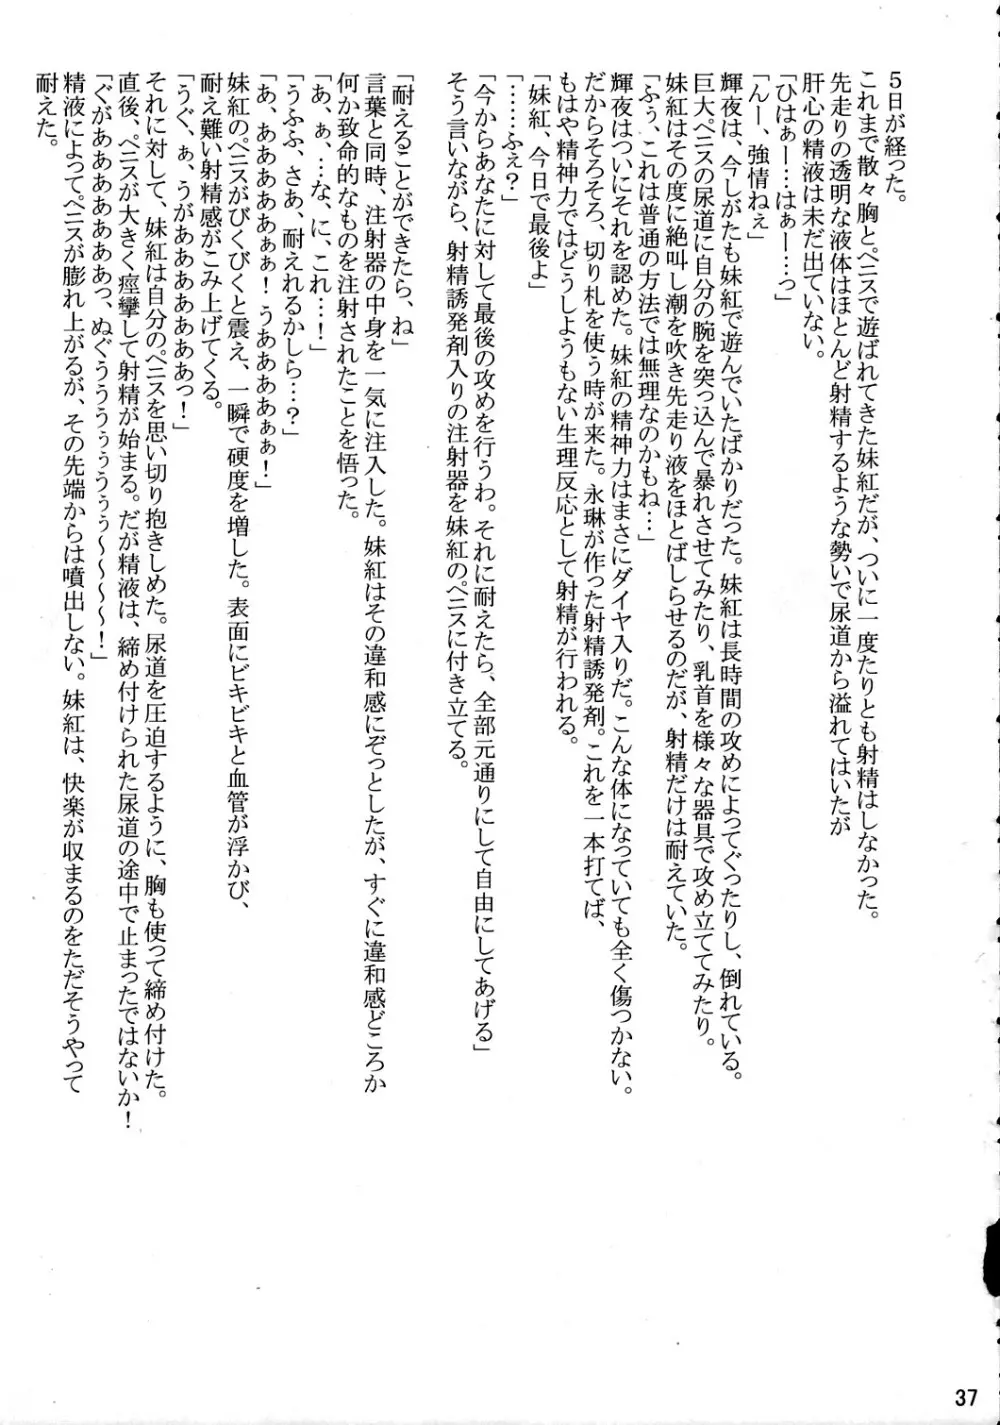 ５日が経った。
これまで散々胸とペニスで遊ばれてきた妹紅だが、ついに一度たりとも射精はしなかった。
先走りの透明な液体はほとんど射精するような勢いで尿道から溢れてはいたが
肝心の精液は未だ出ていない。
「ひはぁー…はぁー…っ」
「んー、強情ねぇ」
輝夜は、今しがたも妹紅で遊んでいたばかりだった。妹紅は長時間の攻めによってぐったりし、倒れている。
巨大ペニスの尿道に自分の腕を突っ込んで暴れさせてみたり、乳首を様々な器具で攻め立ててみたり。
妹紅はその度に絶叫し潮を吹き先走り液をほとばしらせるのだが、射精だけは耐えていた。
「ふぅ、これは普通の方法では無理なのかもね…」
輝夜はついにそれを認めた。妹紅の精神力はまさにダイヤ入りだ。こんな体になっていても全く傷つかない。
だからそろそろ、切り札を使う時が来た。永琳が作った射精誘発剤。これを一本打てば、
もはや精神力ではどうしようもない生理反応として射精が行われる。
「妹紅、今日で最後よ」
「……ふぇ？」
「今からあなたに対して最後の攻めを行うわ。それに耐えたら、全部元通りにして自由にしてあげる」
そう言いながら、射精誘発剤入りの注射器を妹紅のペニスに付き立てる。
「耐えることができたら、ね」
言葉と同時、注射器の中身を一気に注入した。妹紅はその違和感にぞっとしたが、すぐに違和感どころか
何か致命的なものを注射されたことを悟った。
「あ、ぁ、…な、に、これ…！」
「うふふ、さあ、耐えれるかしら…？」
「あ、あああああぁぁ！うああああぁぁ！」
妹紅のペニスがびくびくと震え、一瞬で硬度を増した。表面にビキビキと血管が浮かび、
耐え難い射精感がこみ上げてくる。
「うぐ、ぁ、うがああああああああっ！」
それに対して、妹紅は自分のペニスを思い切り抱きしめた。尿道を圧迫するように、胸も使って締め付けた。
直後、ペニスが大きく痙攣して射精が始まる。だが精液は、締め付けられた尿道の途中で止まったではないか！
「ぐがああああああああっ、ぬぐうううぅぅうぅぅ～～～～！」
精液によってペニスが膨れ上がるが、その先端からは噴出しない。妹紅は、快楽が収まるのをただそうやって
耐えた。
37